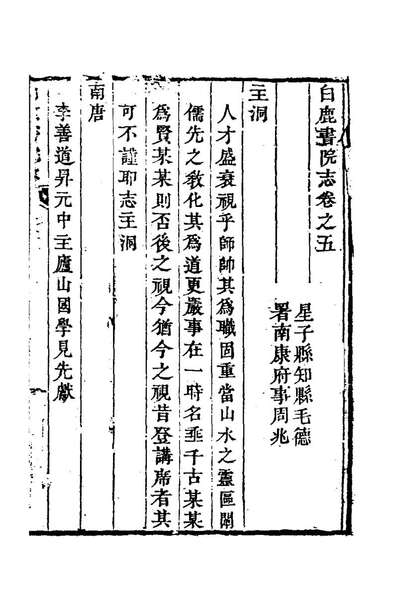 白鹿書院志卷之五
星子縣知縣毛德
署南康府事周兆
主洞
人才盛衰視乎師帥其爲職固重當山水之靈區闡
儒先之敎化其爲道更嚴事在一時名垂千古某某
爲賢某某則否後之視今猶今之視昔登講席者其
可不謹耶志主洞
南唐
李善道昇元中主廬山國學見先獻